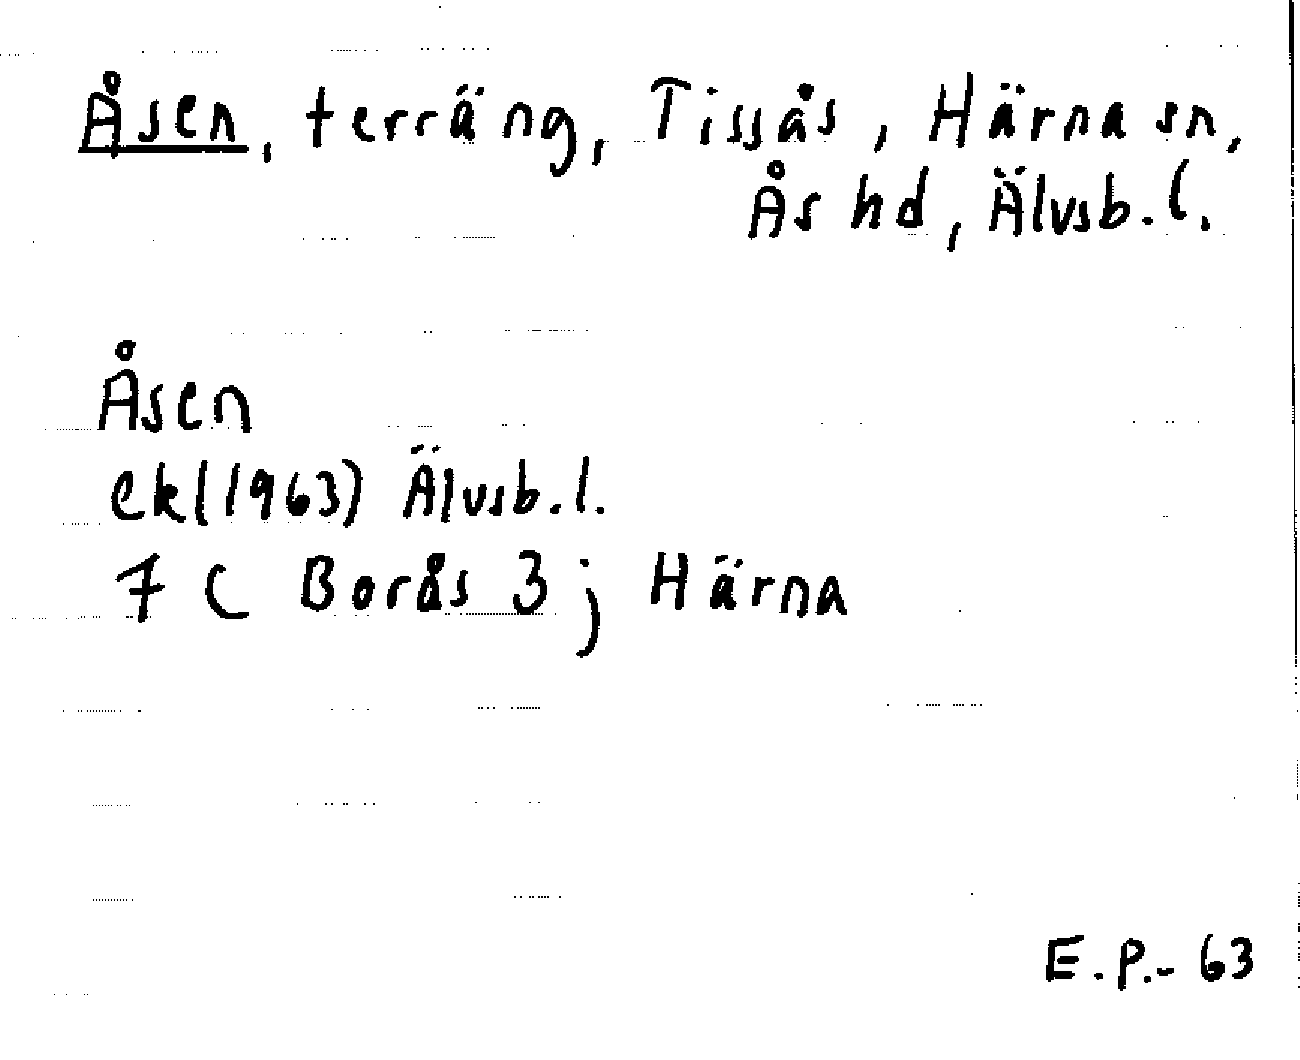 Åsen, terräng, Tissås, Härna sn,
Ås hd, Älvsb.l.
Åsen
ek(1963) Älvsb.l.
7 C Borås 3 j Härna
E.P.-63